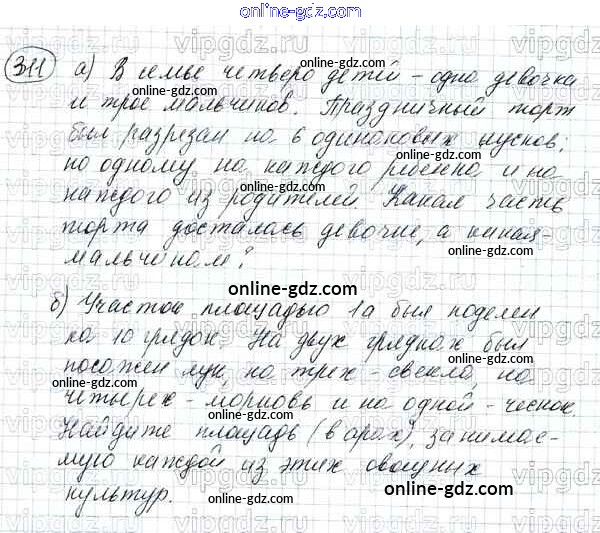 online-gdz.com
311 а) В семье четверо детей – одна девочка
и трое мальчиков. Праздничный торт
был разрезан на 6 одинаковых кусков:
по одному на каждого ребёнка и на
каждого из родителей. Какая часть
торта досталась девочке, а какая –
мальчикам?
б) Участок площадью 1а был поделен
на 10 грядок. На двух грядках был
посажен лук, на трёх – свекла, на
четырех – морковь и на одной – чеснок.
Найдите площадь (в арах), занимае-
мую каждой из этих овощных
культур.
online-gdz.com